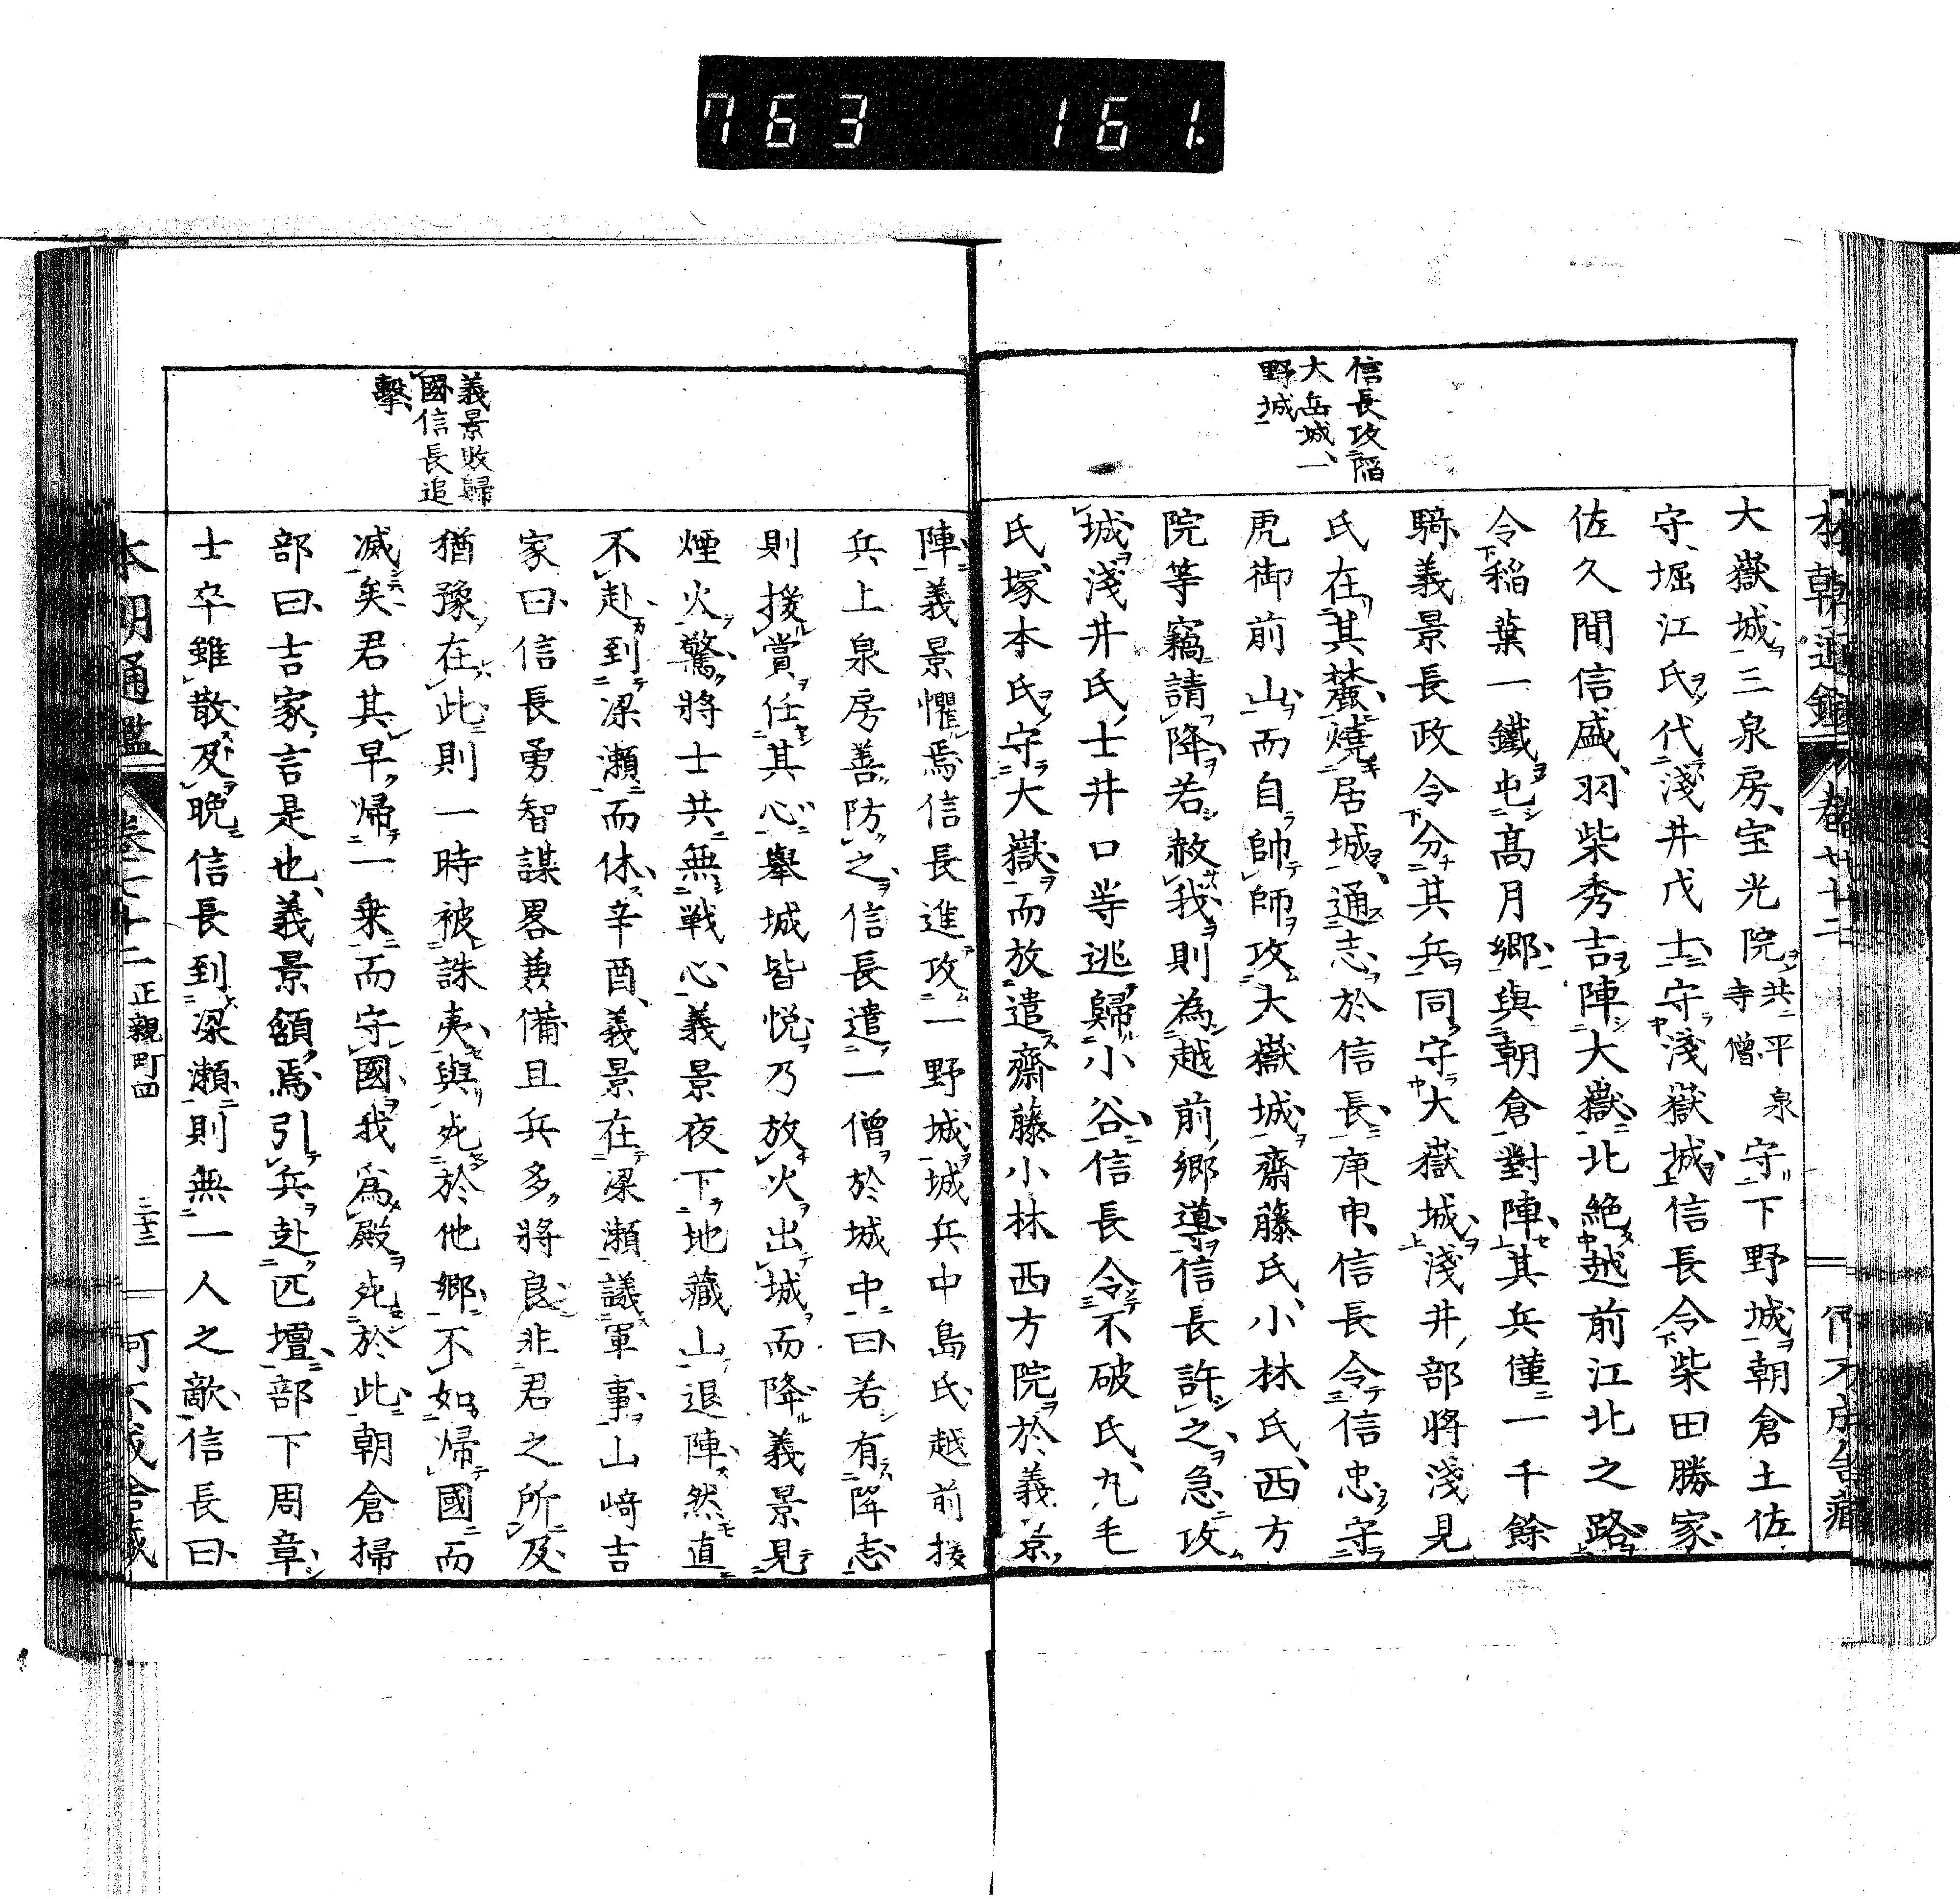 763 161.
信長攻陥
大岳城、一
野城
大嶽城三泉房、宝光院共平泉寺僧守下野城朝倉土佐
守、堀江氏代淺井戊士守淺嶽城信長令柴田勝家
佐久間信盛、羽柴秀吉陣大嶽北絶越前江北之路
令稲葉一鐵屯髙月郷與朝倉對陣其兵僅一千餘
騎義景長政令分其兵同守大嶽城淺井部將淺見
氏在其麓燒居城通志於信長庚申信長令信忠守
虎御前山而自帥師攻大嶽城齋藤氏、小林氏、西方
院等竊請降若赦我則為越前郷導信長許之急攻
城淺井氏士井口等逃歸小谷信長令不破氏、丸毛
氏塚本氏守大嶽而放遣齋藤小林西方院於義景
義景敗歸
國信長追
擊
陣義景懼焉信長進攻一野城城兵中島氏越前援
兵上泉房善防之信長遣一僧於城中曰若有降志
則授賞任其心舉城皆悦乃放火出城而降義景見
煙火驚將士共無戦心義景夜下地藏山退陣然直
不赴到梁瀬而休辛酉義景在梁瀬議軍事山﨑吉
家曰信長勇智謀畧兼備且兵多將良非君之所及
猶豫在此則一時被誅夷與死於他郷不如帰國而
滅矣君其早帰一乗而守國我為殿死於此朝倉掃
部曰吉家言是也義景額焉引兵赴匹壇部下周章
士卒雖散及晩信長到梁瀬則無一人之敵信長曰
本朝通鑑 卷七十二 正親町四 三十三